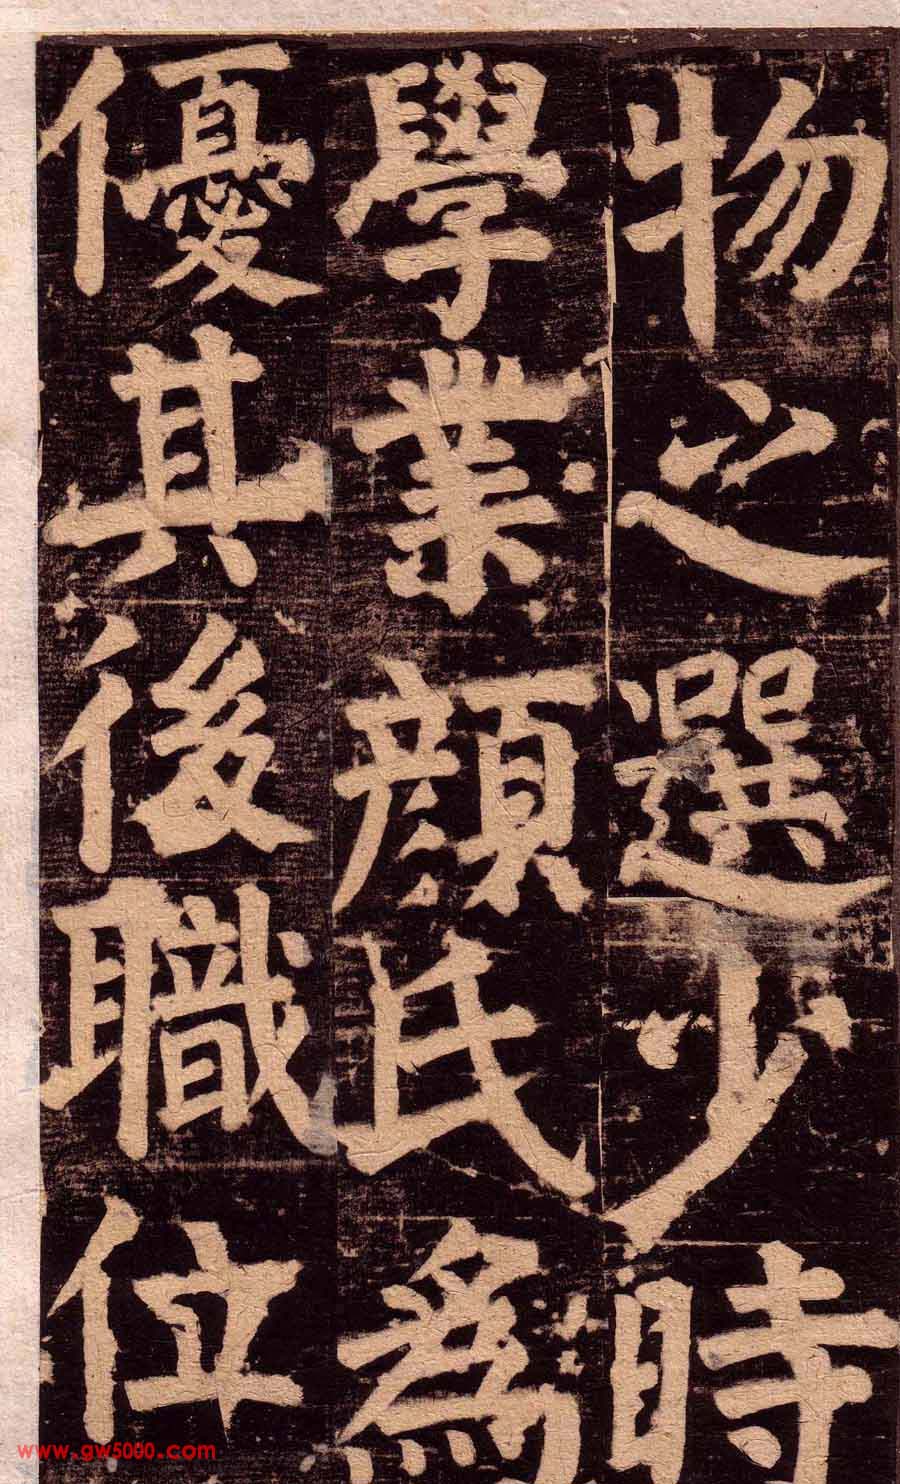 物之選少時
學業顏氏為
優其後職位
www.gw5000.com